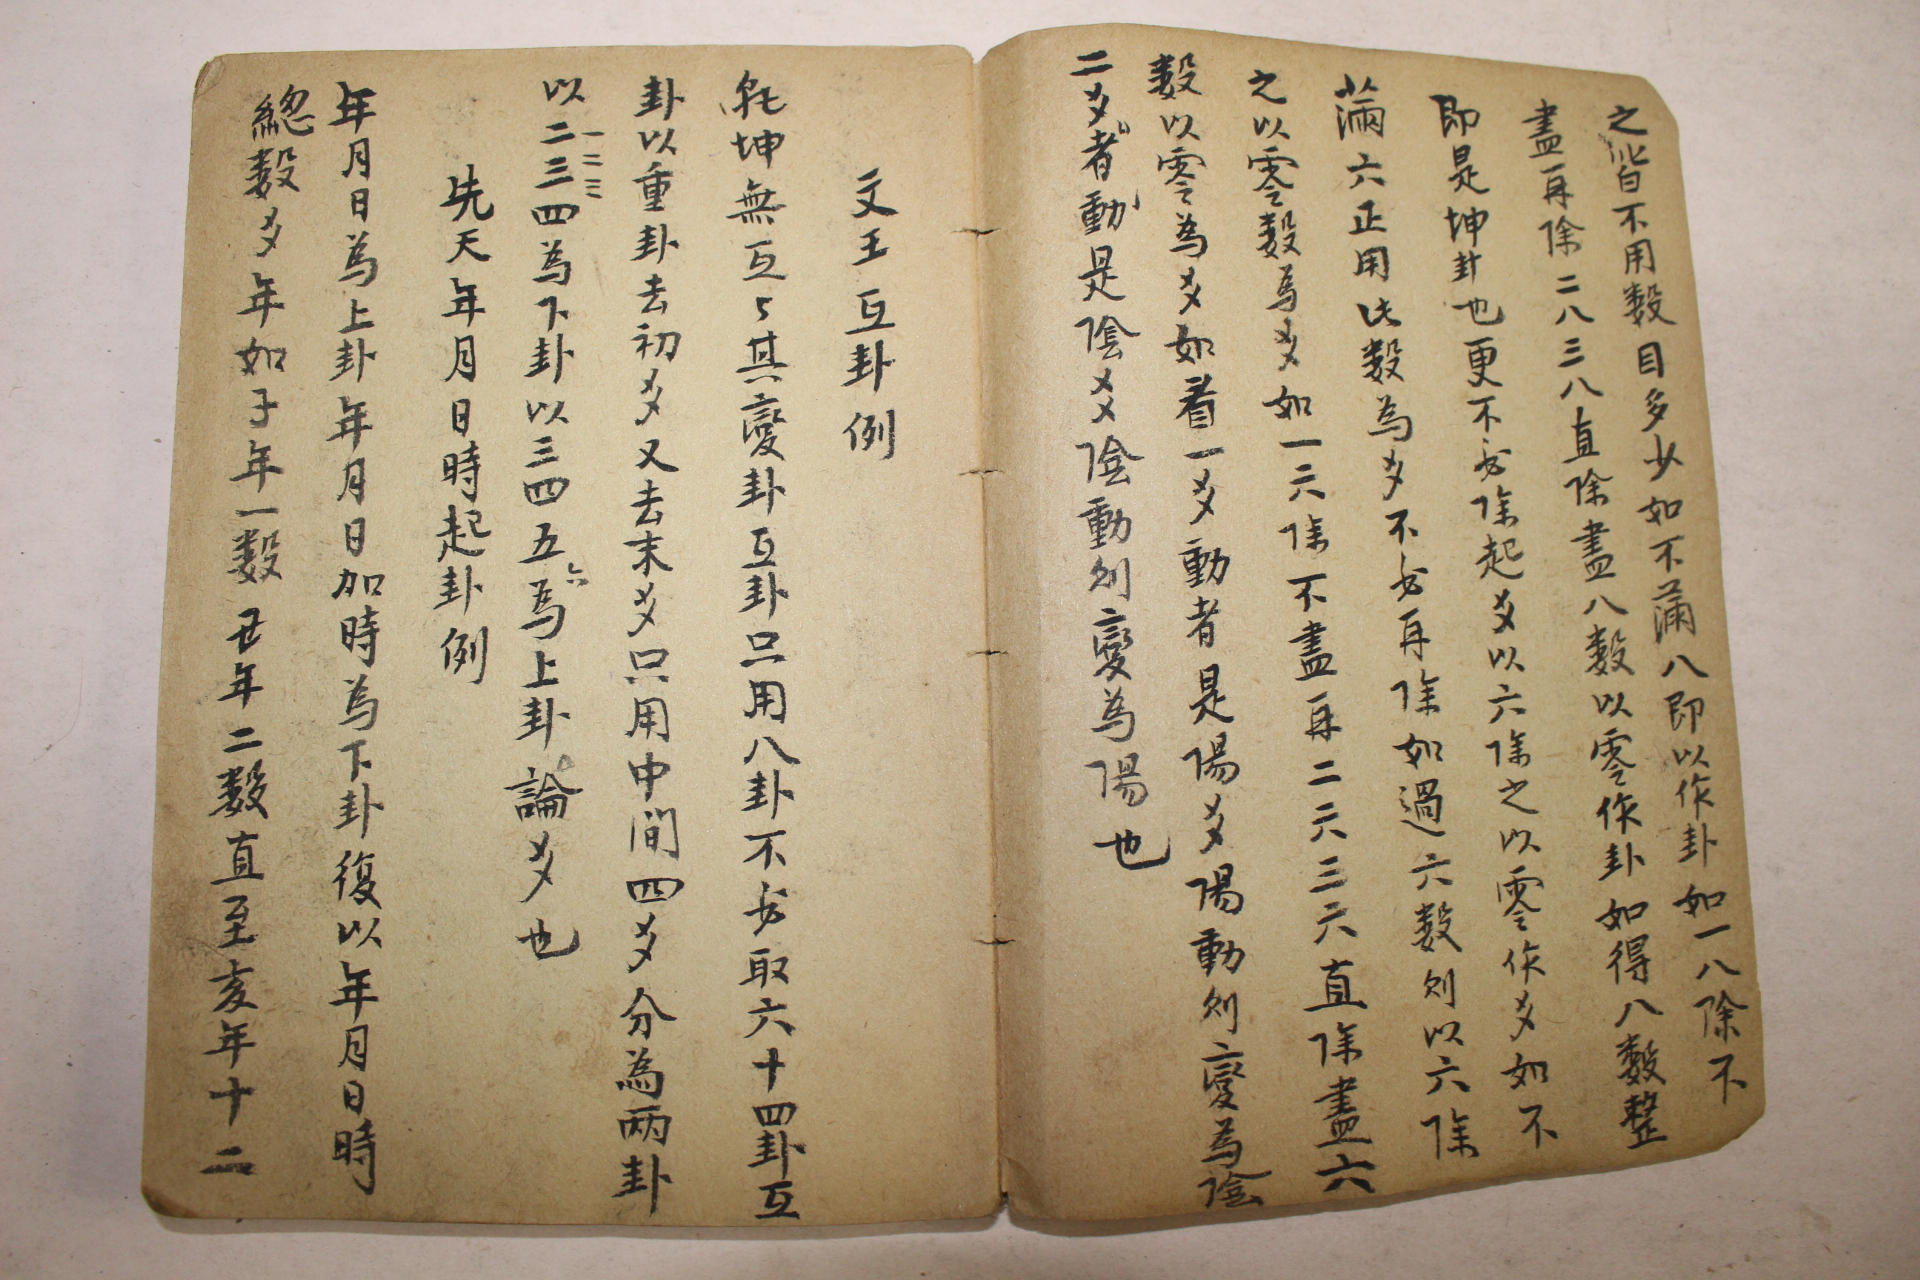 之皆不用数目多少如不滿八即以作卦如一八除不
盡再除二八三八直除盡八数以零作卦如得八数整
即是坤卦也更不必除起爻以六除之以零作爻如不
滿六正用此数為爻不必再除如過六数則以六除
之以零数為爻如一六除不盡再二六三六直除盡六
数以零為爻如看一爻動者是陽爻陽動則變為陰
二爻者動是陰爻陰動則變為陽也
文王互卦例
乹坤無互〻其變卦互卦只用八卦不必取六十四卦互
卦以重卦去初爻又去末爻只用中間四爻分為两卦
以二三四為下卦以三四五為上卦論爻也
一二三
六
先天年月日時起卦例
年月日為上卦年月日加時為下卦復以年月日時
總数爻年如子年一数丑年二数直至亥年十二